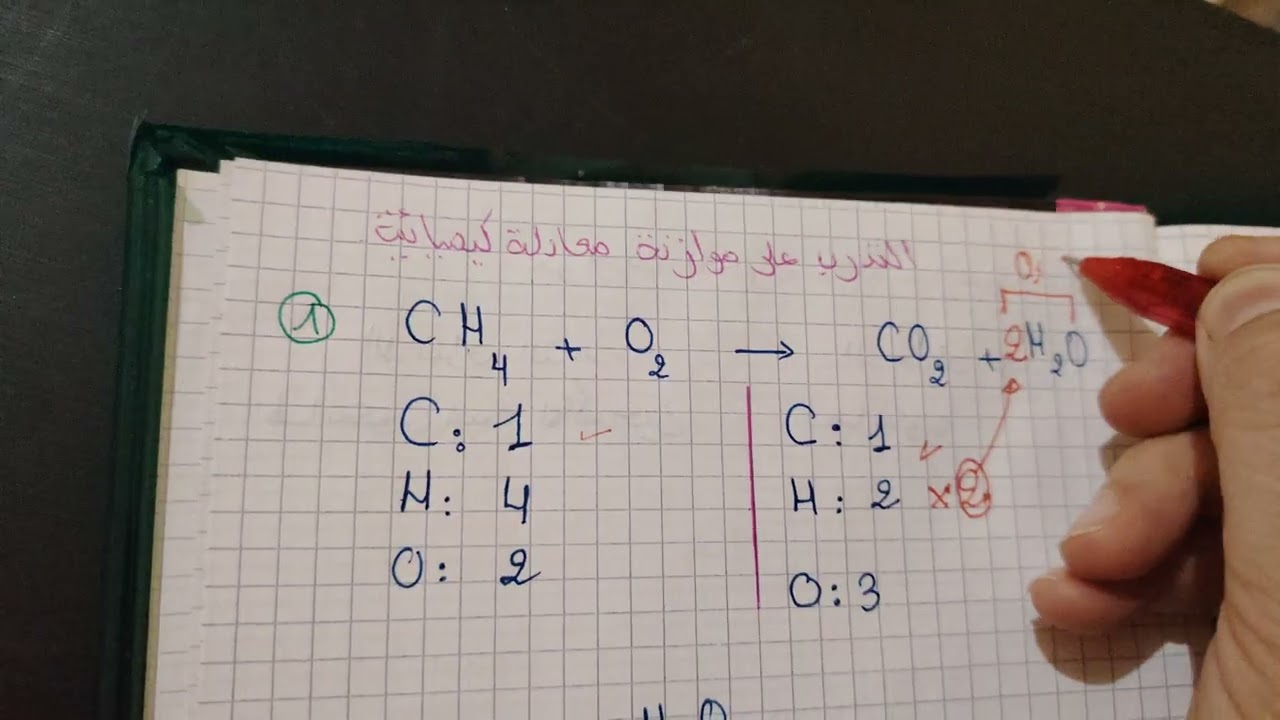 التدرب على موازنة معادلة كيميائية
O:
1 CH₄ + O₂ → CO₂ + 2H₂O
C: 1 ✓ C: 1 ✓
H: 4 H: 2 ×2
O: 2 O: 3